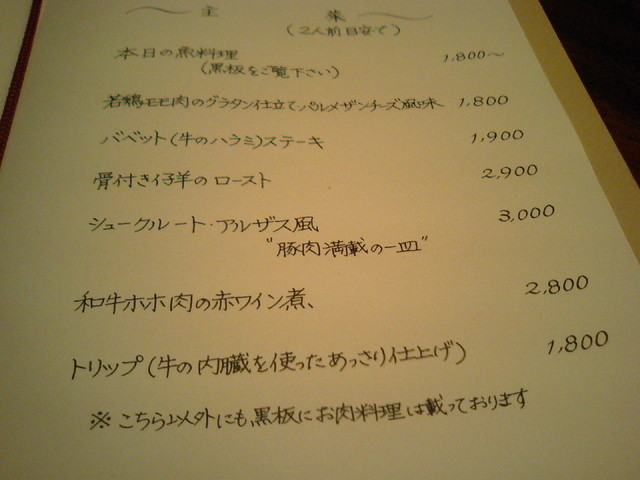 主菜
(2人前目安で)
本日の魚料理 1,800～
(黒板をご覧下さい)
若鶏モモ肉のグラタン仕立てパルメザンチーズ風味 1,800
バベット(牛のハラミ)ステーキ 1,900
骨付き仔羊のロースト 2,900
シュークルート・アルザス風 3,000
"豚肉満載の一皿"
和牛ホホ肉の赤ワイン煮、 2,800
トリップ(牛の内臓を使ったあっさり仕上げ) 1,800
※こちら以外にも、黒板にお肉料理は載っております